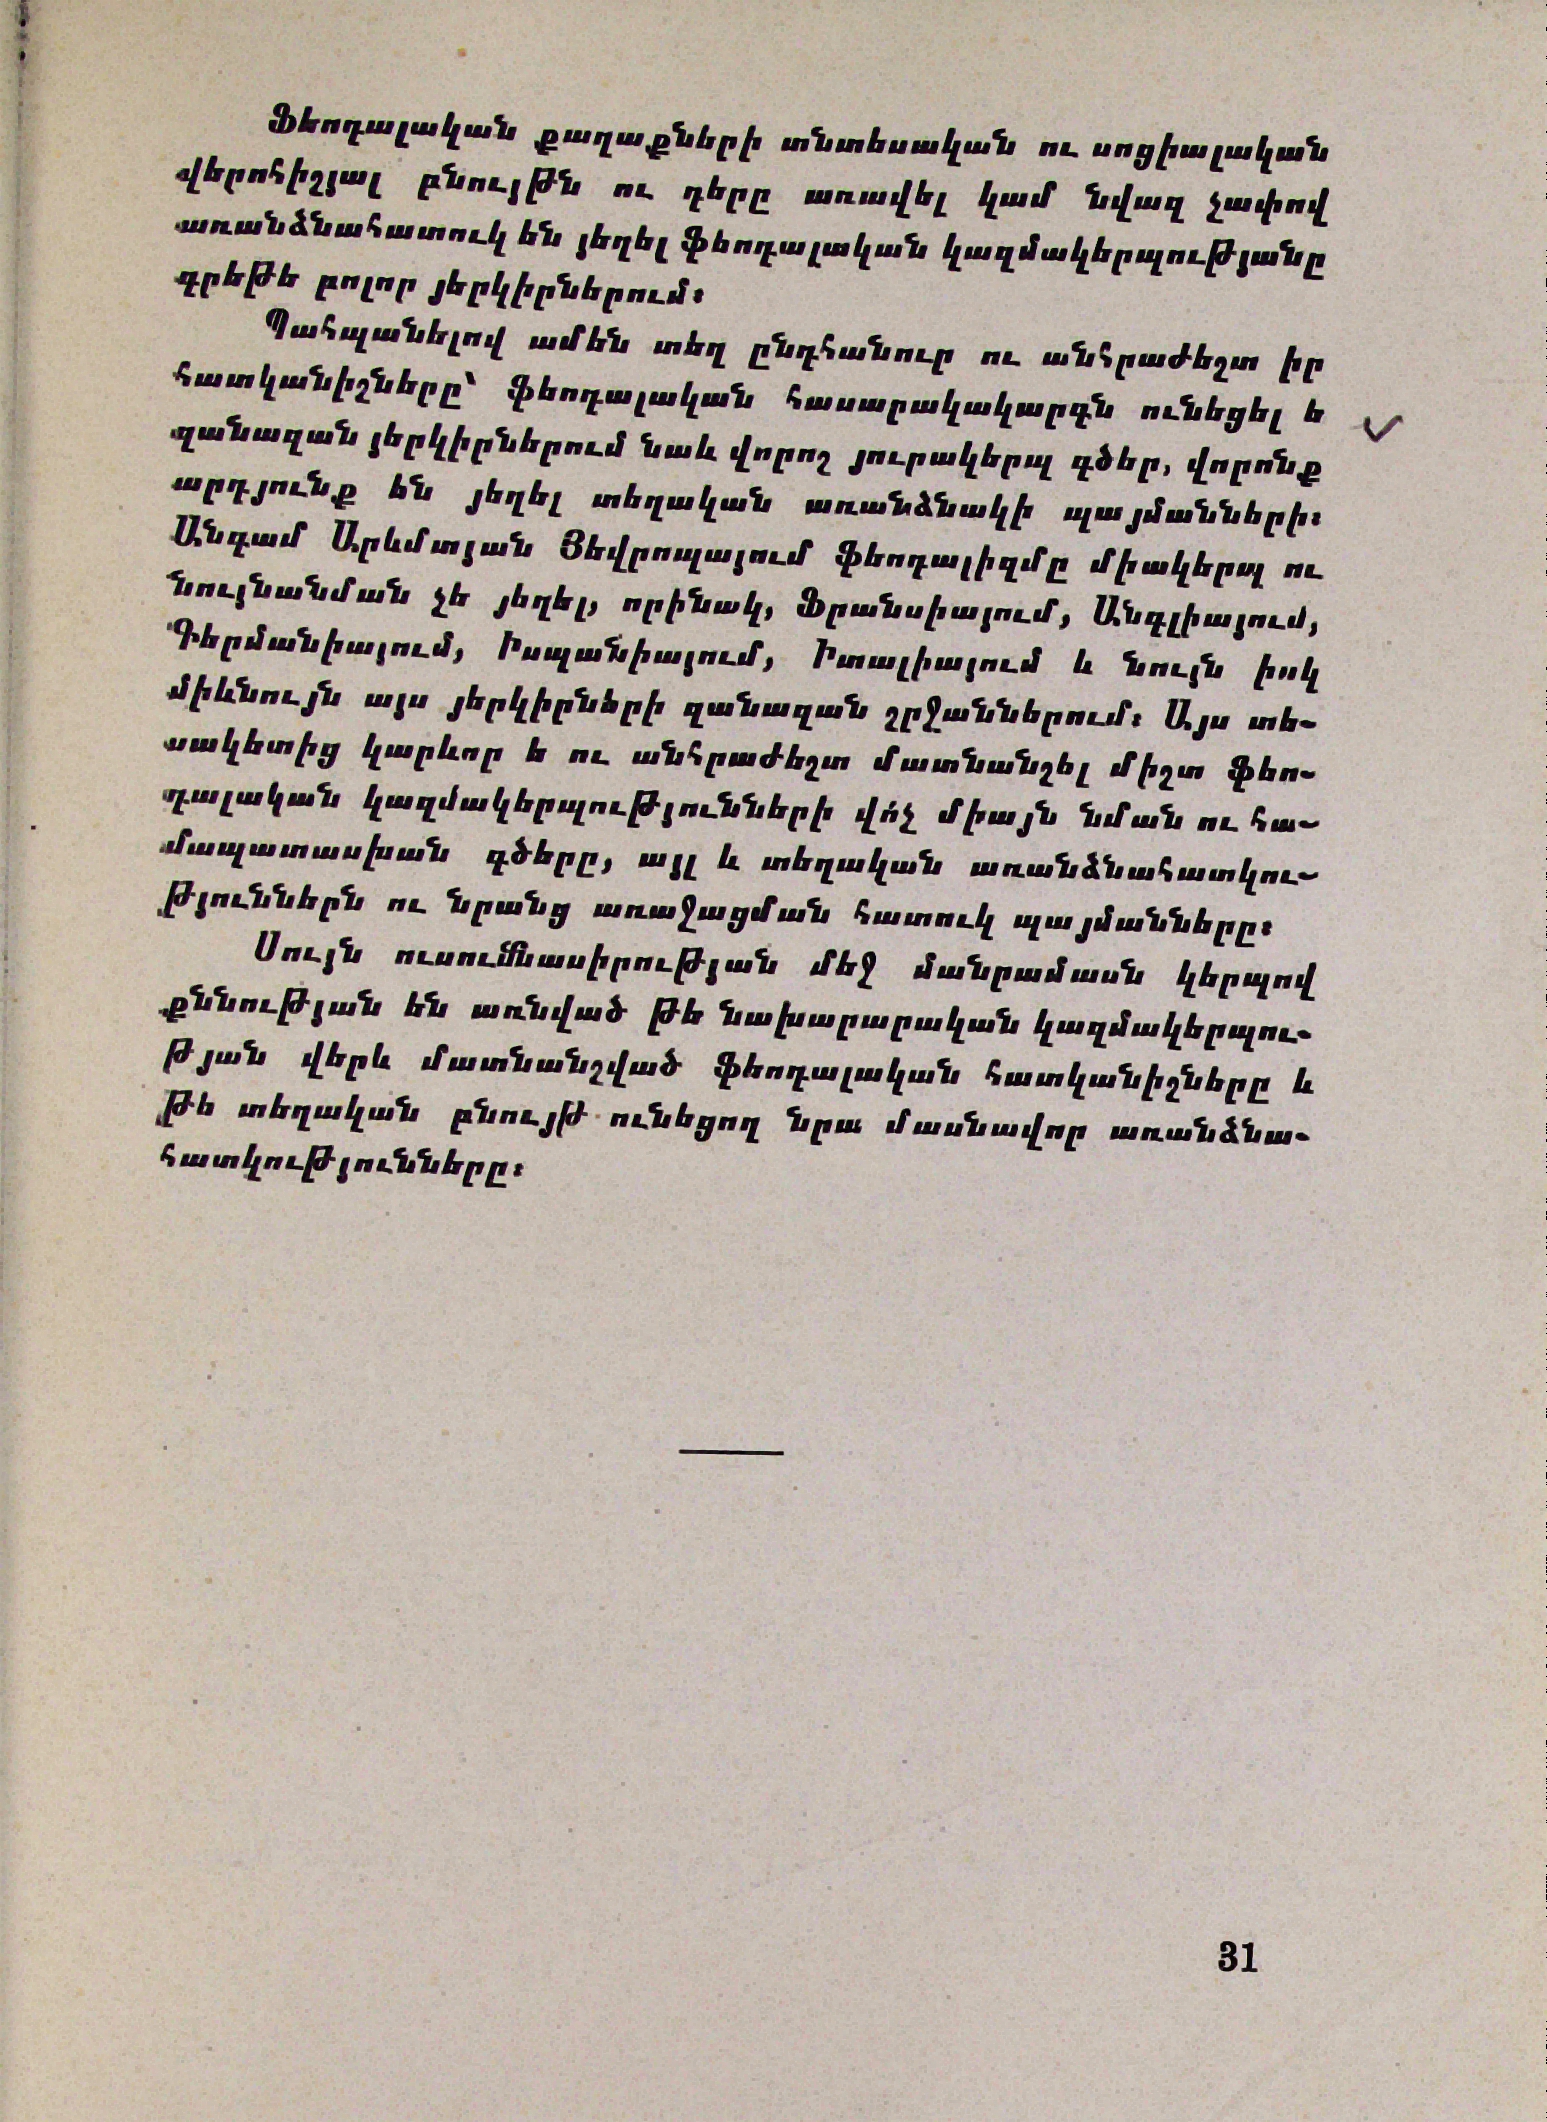 Ֆեոդալական քաղաքների տնտեսական ու սոցիալական
վերոհիշյալ բնույթն ու դերը առավել կամ նվազ չափով
առանձնահատուկ են յեղել ֆեոդալական կազմակերպությանը
գրեթե բոլոր յերկիրներում։
Պահպանելով ամեն տեղ ընդհանուր ու անհրաժեշտ իր
հատկանիշները՝ ֆեոդալական հասարակակարգն ունեցել ե
զանազան յերկիրներում նաև վորոշ յուրակերպ գծեր, վորոնք
արդյունք են յեղել տեղական առանձնակի պայմանների։
Անգամ Արևմտյան Յեվրոպայում ֆեոդալիզմը միակերպ ու
նույնանման չե յեղել, որինակ, Ֆրանսիայում, Անգլիայում,
Գերմանիայում, Իսպանիայում, Իտալիայում և նույն իսկ
միևնույն այս յերկիրների զանազան շրջաններում։ Այս տե-
սակետից կարևոր ե ու անհրաժեշտ մատնանշել միշտ ֆեո-
դալական կազմակերպությունների վո՛չ միայն նման ու հա-
մապատասխան գծերը, այլ և տեղական առանձնահատկու-
թյուններն ու նրանց առաջացման հատուկ պայմանները։
Սույն ուսումնասիրության մեջ մանրամասն կերպով
քննության են առնված թե նախարարական կազմակերպու-
թյան վերև մատնանշված ֆեոդալական հատկանիշները և
թե տեղական բնույթ ունեցող նրա մասնավոր առանձնա-
հատկությունները։
31